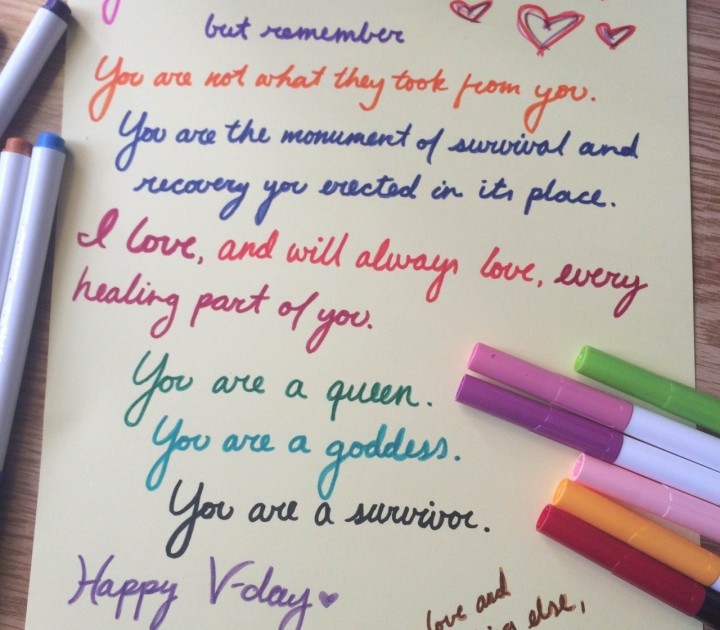 but remember
You are not what they took from you.
You are the monument of survival and
recovery you erected in its place.
I love, and will always love, every
healing part of you.
You are a queen.
You are a goddess.
You are a survivor.
Happy V-day
love and
else,